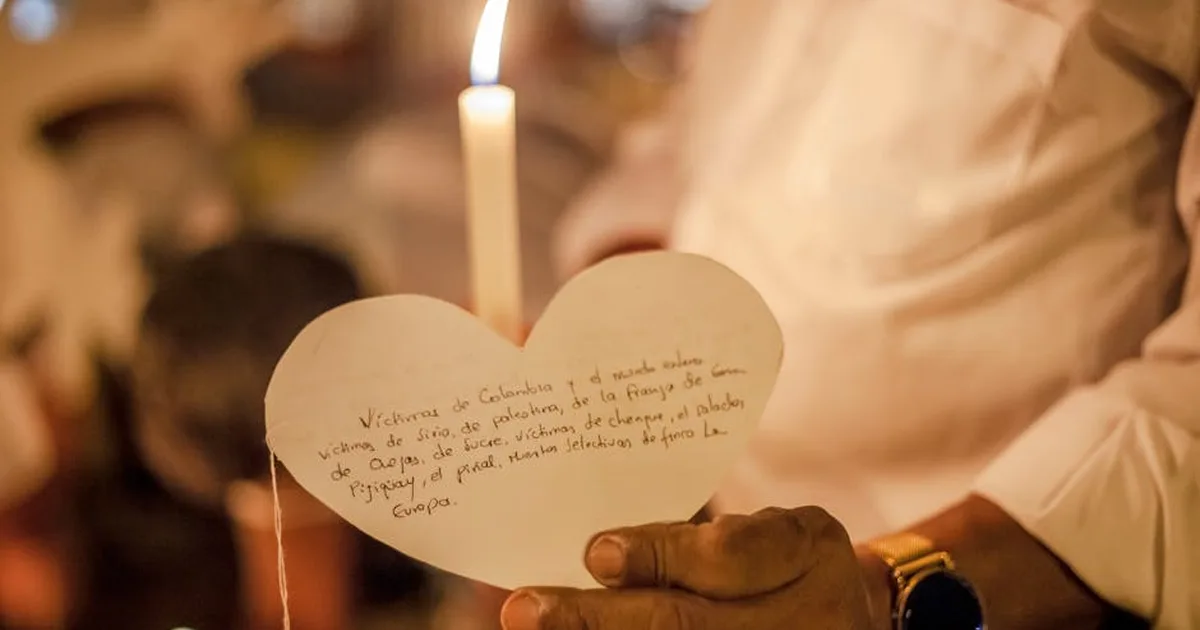 Víctimas de Colombia y el mundo entero
víctimas de Siria, de palestina, de la franja de Gaza
de Ovejas, de Sucre, víctimas de chengue, el salado,
Pijiguay, el piñal, Muertos selectivas de finca La
Europa.